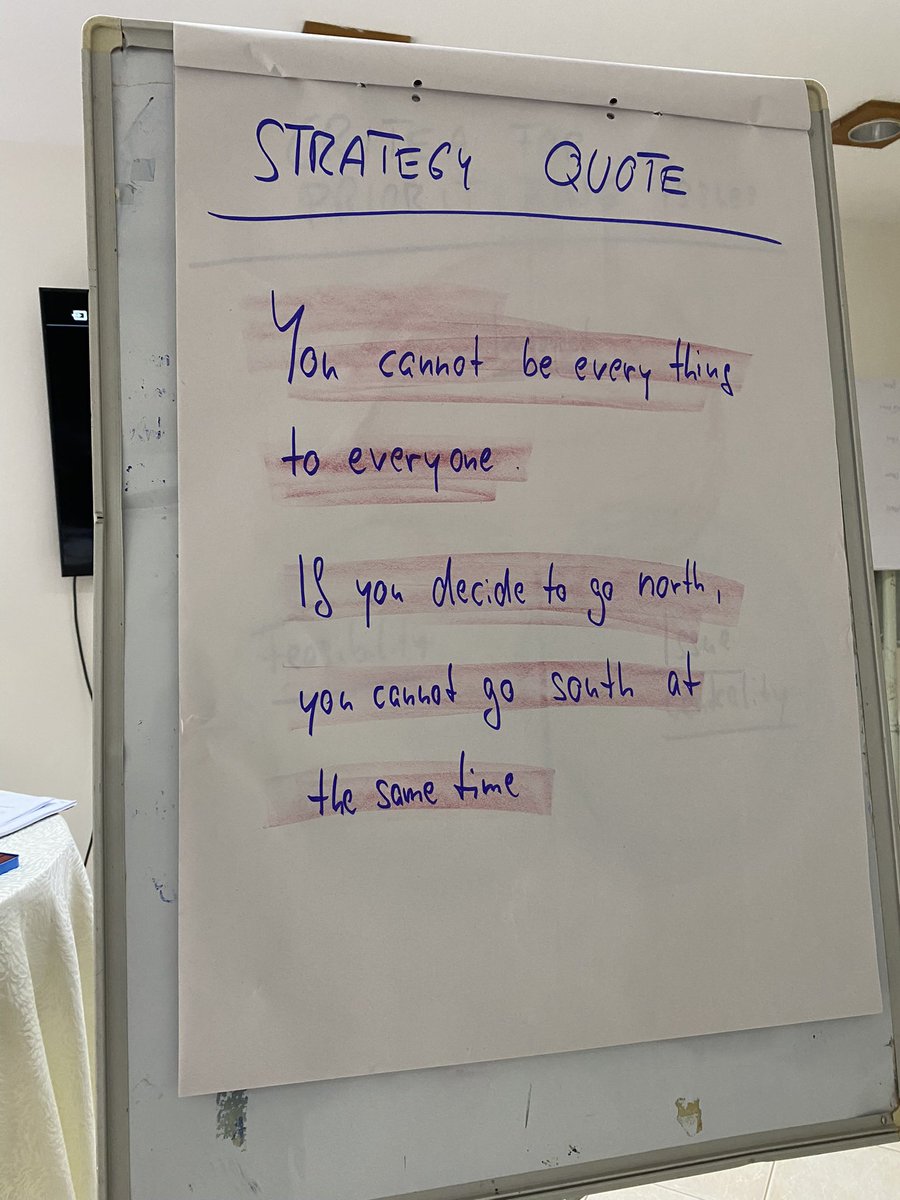 STRATEGY QUOTE
You cannot be every thing
to everyone.
If you decide to go north,
you cannot go south at
the same time